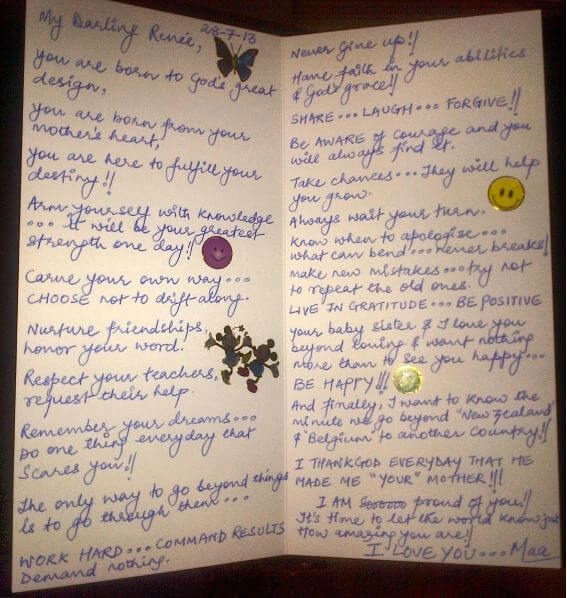 My Darling Renée,
28-7-13
you are born to God's great
design,
you are born from your
mother's heart,
you are here to fulfill your
destiny!!
Arm yourself with knowledge
... it will be your greatest
strength one day!
Carve your own way...
CHOOSE not to drift along.
Nurture friendships,
honor your word.
Respect your teachers,
request their help.
Remember your dreams...
Do one thing everyday that
scares you!!
The only way to go beyond things
is to go through them...
WORK HARD... COMMAND RESULTS
Demand nothing.
Never give up!!
Have faith in your abilities
& God's grace!!
SHARE... LAUGH... FORGIVE!!
Be AWARE of courage and you
will always find it.
Take chances... They will help
you grow.
Always wait your turn.
Know when to apologise...
what can bend... never breaks!
make new mistakes... try not
to repeat the old ones.
LIVE IN GRATITUDE... BE POSITIVE
your baby sister & I love you
beyond loving & want nothing
more than to see you happy...
BE HAPPY!!!
And finally, I want to know the
minute we go beyond "New Zealand
& Belgium" to another country!!
I THANK GOD EVERYDAY THAT HE
MADE ME "YOUR" MOTHER!!!
I AM Soooooo proud of you!!
It's time to let the world know just
How amazing you are!!
I LOVE YOU... Maa